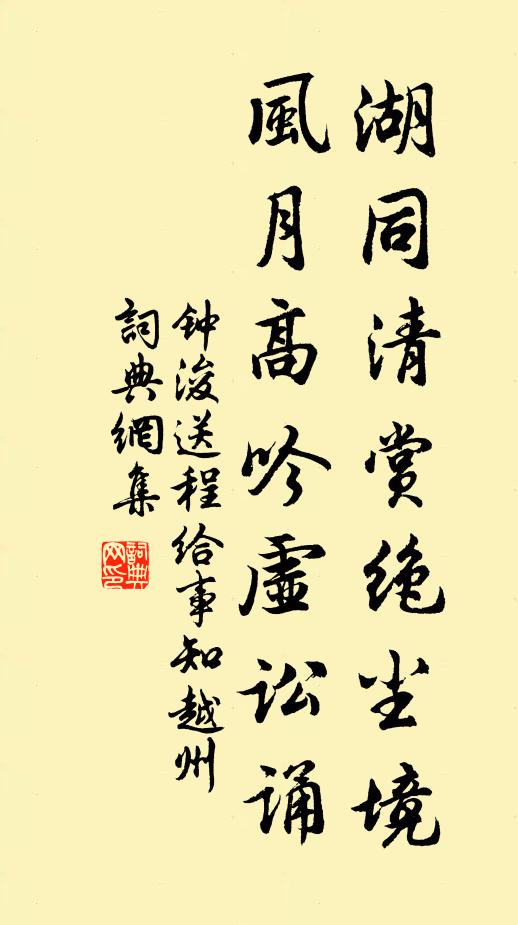 湖同清赏绝尘境
風月高吟虚讼诵
钟浚送程给事知越州
詞典網集
詞典网印